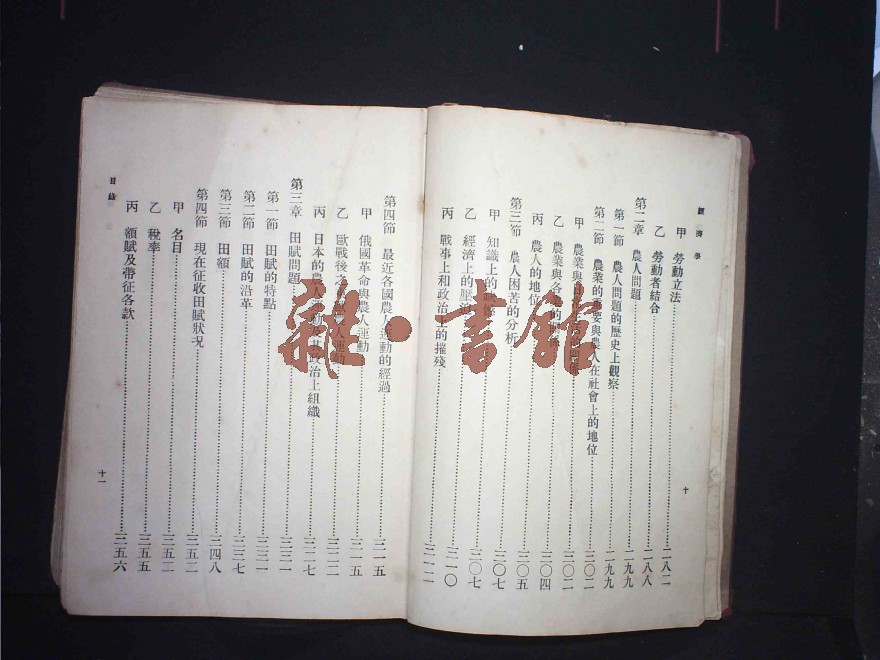 經濟學
甲 勞動立法……二八二
乙 勞動者結合……二八八
第二章 農人問題……二九九
第一節 農人問題的歷史上觀察……二九九
第二節 農業的重要與農人在社會上的地位……三〇二
甲 農業與……三〇二
乙 農業與各……三〇四
丙 農人的地位……三〇五
第三節 農人困苦的分析……三〇七
甲 知識上的……三〇七
乙 經濟上的壓……三一〇
丙 戰事上和政治上的摧殘……三一二
十
第四節 最近各國農人運動的經過……三一五
甲 俄國革命與農人運動……三一五
乙 歐戰後之……人運動……三二二
丙 日本的農人運動及其政治上組織……三二七
第三章 田賦問題……三三一
第一節 田賦的特點……三三一
第二節 田賦的沿革……三三七
第三節 田額……三四八
第四節 現在征收田賦狀況……三五二
甲 名目……三五二
乙 稅率……三五五
丙 額賦及帶征各款……三五六
目錄
十一
雜·書館